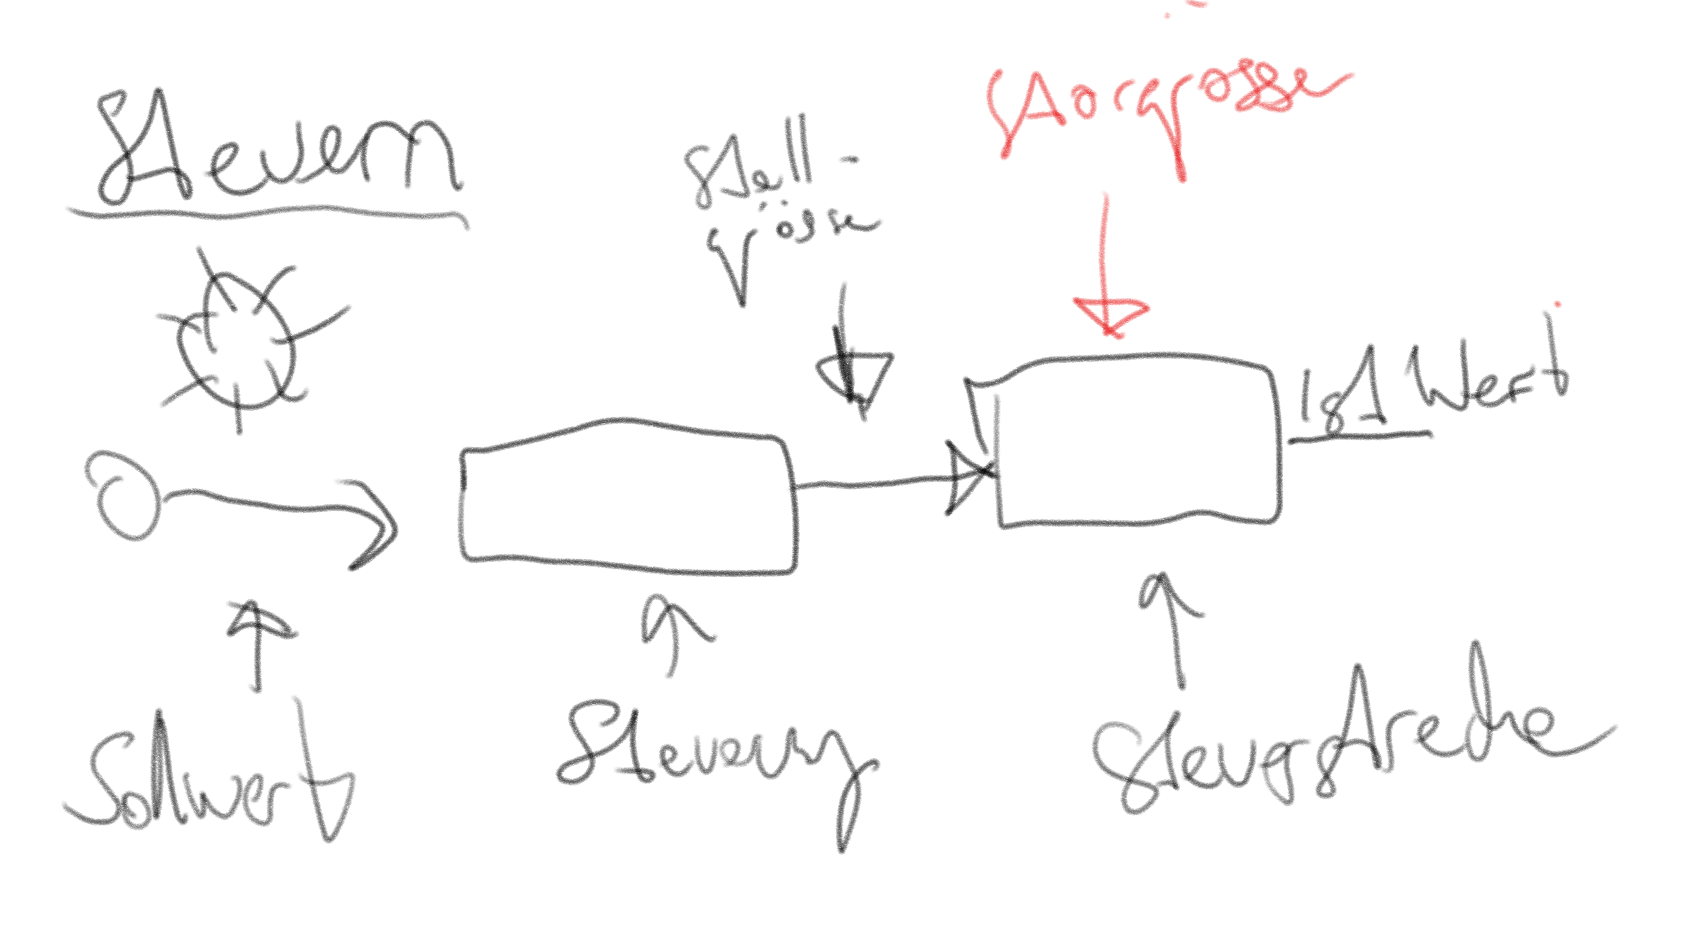 Steuern
Stell-
grösse
Störgrösse
Ist Wert
Sollwert
Steuerung
Steuerstrecke